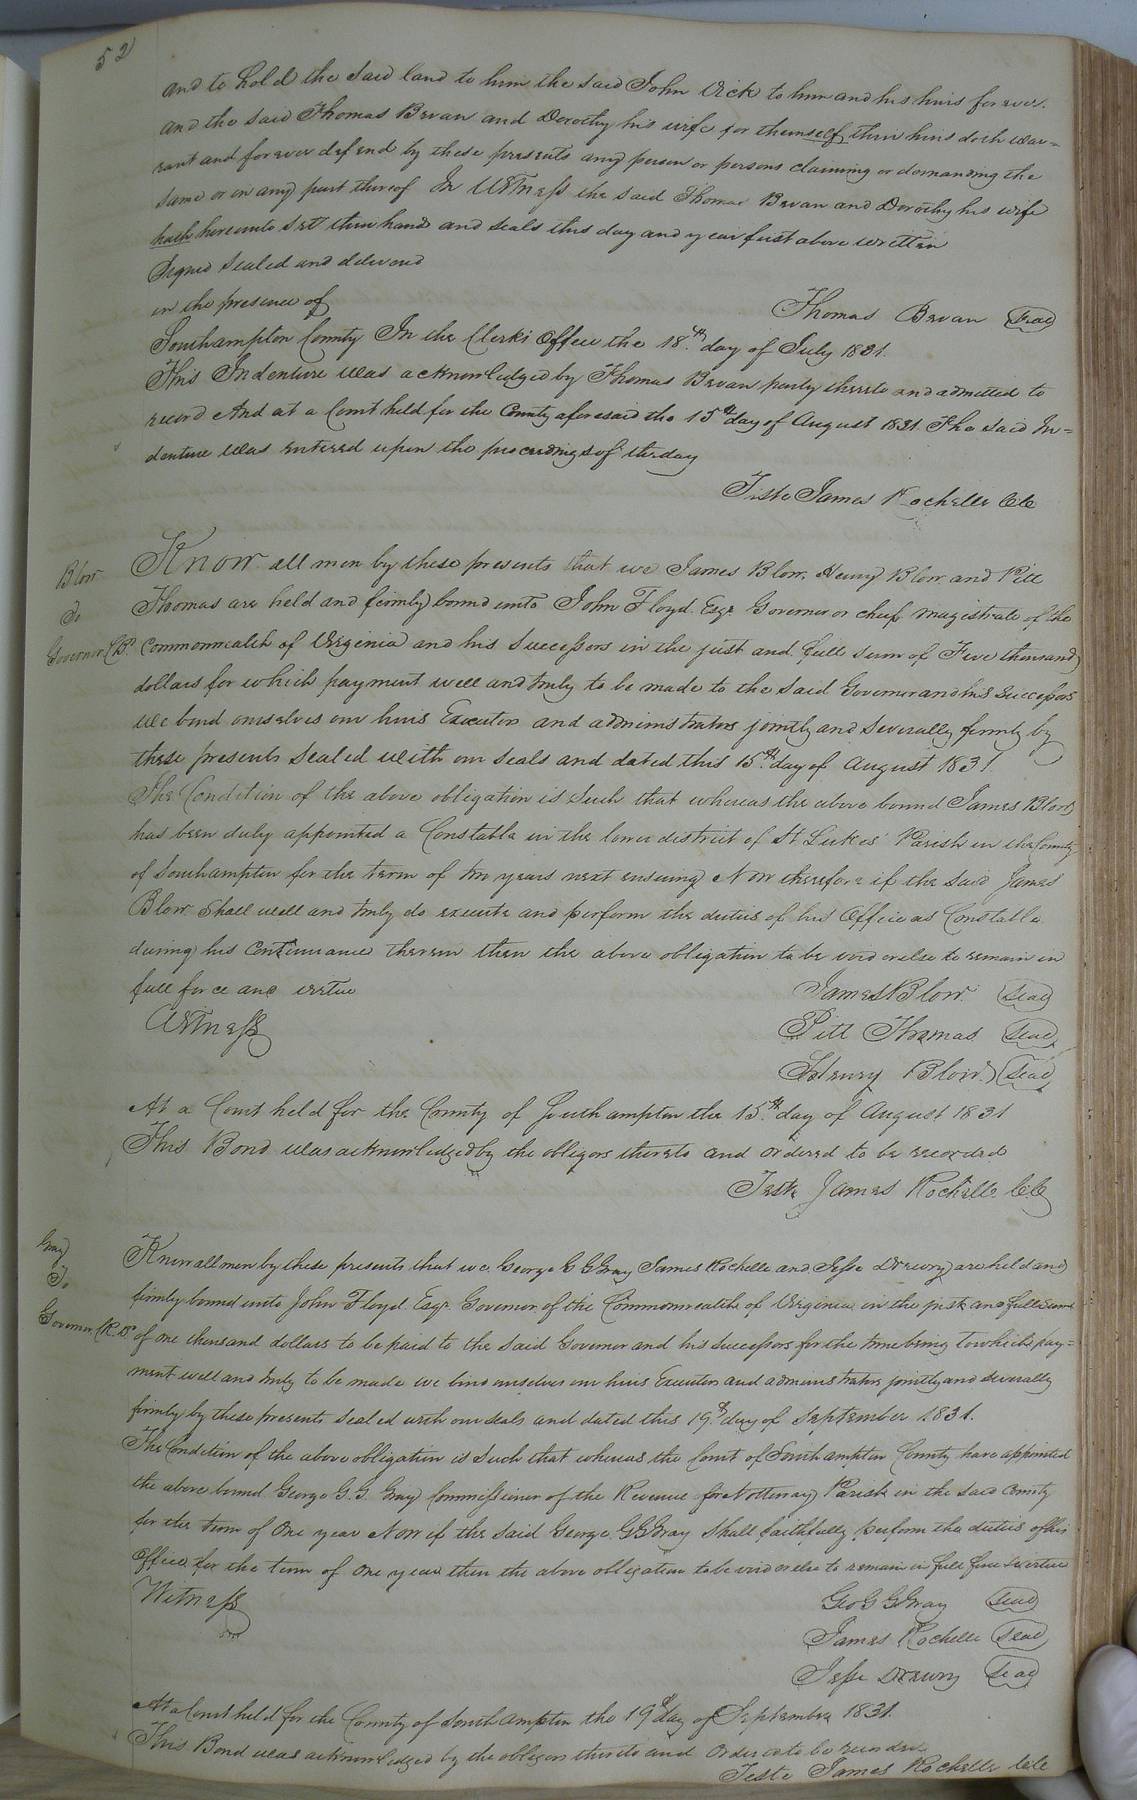 52
and to hold the said land to him the said John Vick to him and his hiris for ever.
And the said Thomas Bevan and Dorothy his wife for themself their hiris doth war=
rant and forever defend by these presents any person or persons claiming or demanding the
same or on any part thereof In Witness the said Thomas Bevan and Dorothy his wife
hath hereunto Sett their hands and seals this day and year first above written
Signed Sealed and delivered
in the presence of
Thomas Bevan Seal
Southampton County In the Clerks Office the 18th day of July 1831.
This Indenture was acknowledged by Thomas Bevan party thereto and admitted to
record And at a Court held for the County aforesaid the 15th day of August 1831. The said In=
denture was entered upon the proceedings of the day
Teste James Rochelle Clk
Blow
To
Governor &c Bd.
Know all men by these presents that we James Blow, Henry Blow and Pitt
Thomas are held and firmly bound unto John Floyd Esqr. Governor or chief magistrate of the
Commonwealth of Virginia and his Successors in the just and full sum of Five thousand
dollars for which payment well and truly to be made to the said Governor and his successors
We bind ourselves our hiris Executors and administrators jointly and severally firmly by
these presents Sealed with our seals and dated this 15th day of August 1831.
The Condition of the above obligation is such that whereas the above bound James Blow
has been duly appointed a Constable in the lower district of St Lukes Parish in the County
of Southampton for the term of two years next ensuing Now therefore if the said James
Blow shall well and truly do execute and perform the duties of his Office as Constable
during his continuance therein then the above obligation to be void or else to remain in
full force and virtue
James Blow Seal
Witness
Pitt Thomas Seal
Henry Blow Seal
At a Court held for the County of Southampton the 15th day of August 1831
This Bond was acknowledged by the obligors thereto and ordered to be recorded
Teste James Rochelle Clk
Gray
To
Governor &c Bd
Know all men by these presents that we George G G Gray James Rochelle and Jesse Drewry are held and
firmly bound unto John Floyd Esqr. Governor of the Commonwealth of Virginia in the just and full sum
of one thousand dollars to be paid to the said Governor and his successors for the time being to which pay=
ment well and truly to be made we bind ourselves our hiris Executors and administrators jointly and severally
firmly by these presents sealed with our seals and dated this 19th day of September 1831.
The Condition of the above obligation is such that whereas the Court of Southampton County have appointed
the above bound George G. G. Gray Commissioner of the Revenue for Nottoway Parish in the said County
for the term of One year Now if the said George G G Gray shall faithfully perform the duties of his
Office for the term of one year then the above obligation to be void or else to remain in full force & virtue
Witness
Geo G G Gray Seal
James Rochelle Seal
Jesse Drewry Seal
At a Court held for the County of Southampton the 19th day of September 1831.
This Bond was acknowledged by the obligors thereto and Ordered to be recorded
Teste James Rochelle Clk